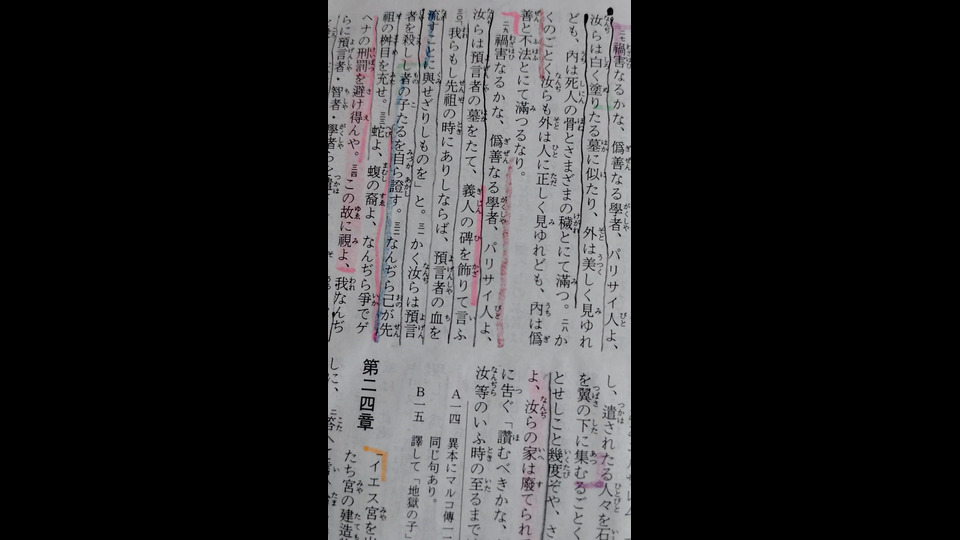 二七 禍害なるかな、僞善なる學者、パリサイ人よ、
汝らは白く塗りたる墓に似たり、外は美しく見ゆれ
ども、內は死人の骨とさまざまの穢とにて滿つ。二八 か
くのごとく汝らも外は人に正しく見ゆれども、內は僞
善と不法とにて滿つるなり。
二九 禍害なるかな、僞善なる學者、パリサイ人よ、
汝らは預言者の墓をたて、義人の碑を飾りて言ふ
三〇「我らもし先祖の時にありしならば、預言者の血を
流すことに與せざりしものを」と。三一 かく汝らは預言
者を殺しし者の子たるを自ら證す。三二 なんぢら己が先
祖の桝目を充せ。三三 蛇よ、蝮の裔よ、なんぢら爭でゲ
ヘナの刑罰を避け得んや。三四 この故に視よ、我なんぢ
らに預言者・智者・學者らを
し、遣されたる人々を石
を翼の下に集むるごとく
とせしこと幾度ぞや、さ
よ、汝らの家は廢てられ
に吿ぐ「讚むべきかな、
汝等のいふ時の至るまで
A一四 異本にマルコ傳一二
同じ句あり。
B一五 譯して「地獄の子」
第二四章
一 イエス宮を出
たち宮の建造
しこに、